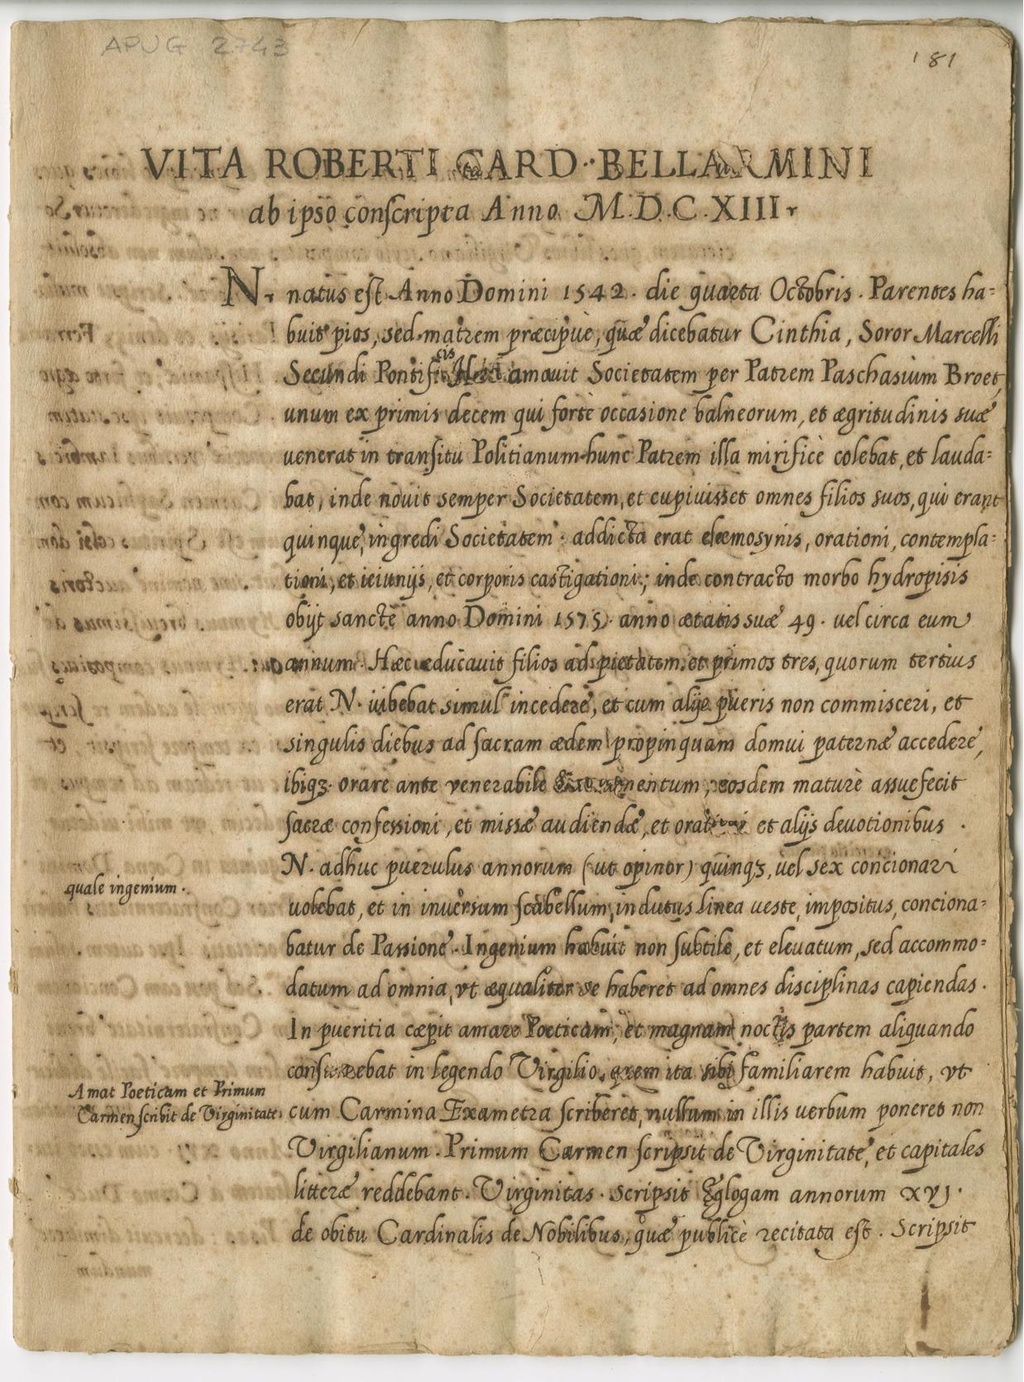 APUG 2743
181
VITA ROBERTI CARD. BELLARMINI
ab ipso conscripta Anno M.D.C.XIII.
N. natus est Anno Domini 1542. die quarta Octobris. Parentes ha=
buit pios, sed matrem præcipuè, quæ dicebatur Cinthia, Soror Marcelli
Secundi Pontificis amauit Societatem per Patrem Paschasium Broet,
unum ex primis decem qui fortè occasione balneorum, et ægritudinis suæ
venerat in transitu Politianum hunc Patrem illa mirificè colebat, et lauda=
bat, inde nouit semper Societatem, et cupiuisset omnes filios suos, qui erant
quinque, ingredi Societatem. addicta erat eleemosynis, orationi, contempla=
tioni, et ieiunijs, et corporis castigationi; inde contracto morbo hydropisis
obijt sanctè anno Domini 1575. anno ætatis suæ 49. uel circa eum
annum. Hæc educauit filios ad pietatem, et primos tres, quorum tertius
erat N. iubebat simul incedere, et cum alijs pueris non commisceri, et
singulis diebus ad sacram ædem propinquam domui paternæ accedere,
ibiq3 orare ante venerabile eosdem maturè assuefecit
sacræ confessioni, et missæ audiendæ, et orationi et alijs deuotionibus.
N. adhuc puerulus annorum (ut opinor) quinq3, uel sex concionari
quale ingenium.
uolebat, et in inuersum scabellum, indutus linea ueste, impositus, conciona=
batur de Passione. Ingenium habuit non subtile, et eleuatum, sed accommo=
datum ad omnia, vt æqualiter se haberet ad omnes disciplinas capiendas.
In pueritia cæpit amare Poeticam, et magnam noctis partem aliquando
consumebat in legendo Virgilio, quem ita sibi familiarem habuit, vt
Amat Poeticam et Primum
Carmen scribit de Virginitate.
cum Carmina Exametra scriberet, nullum in illis verbum poneret non
Virgilianum. Primum Carmen scripsit de Virginitate, et capitales
litteræ reddebant. Virginitas. scripsit Eglogam annorum XVJ.
de obitu Cardinalis de Nobilibus, quæ publicè recitata est. Scripsit